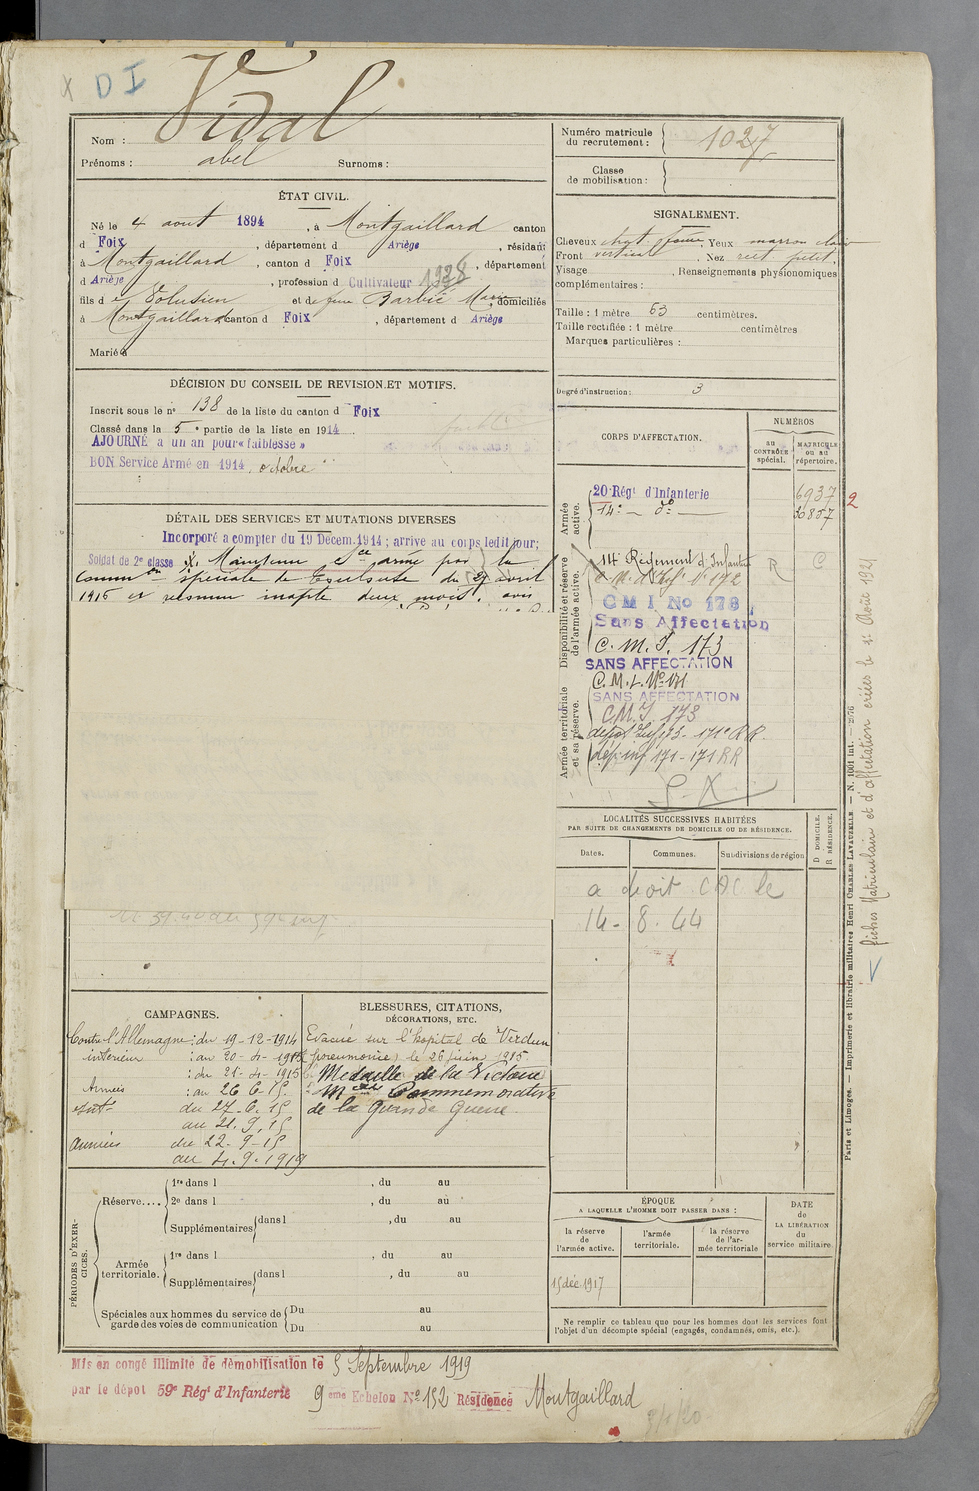 X D I
Nom : Vidal
Prénoms : abel Surnoms :
Numéro matricule du recrutement : 1027
Classe de mobilisation :
ÉTAT CIVIL.
Né le 4 aout 1894, à Montgaillard canton
d Foix, département d Ariège, résidant
à Montgaillard, canton d Foix, département
d Ariège, profession d Cultivateur 1928
fils de Volusien et de feue Barbié Marie, domiciliés
à Montgaillard canton d Foix, département d Ariège
Marié à
SIGNALEMENT.
Cheveux chat. foncé Yeux marron clair
Front vertical Nez rect. petit.
Visage , Renseignements physionomiques
complémentaires :
Taille : 1 mètre 63 centimètres.
Taille rectifiée : 1 mètre centimètres
Marques particulières :
Degré d'instruction : 3
DÉCISION DU CONSEIL DE REVISION ET MOTIFS.
Inscrit sous le nº 138 de la liste du canton d Foix
Classé dans la 5e partie de la liste en 1914
AJOURNÉ à un an pour «faiblesse»
BON Service Armé en 1914, octobre
DÉTAIL DES SERVICES ET MUTATIONS DIVERSES
Incorporé a compter du 19 Décem.1914 ; arrive au corps ledit jour;
Soldat de 2e classe Maintenu Sce armé par la
Common spéciale de du 27 avril
1915 et reconnu inapte deux mois. avis
CORPS D'AFFECTATION.
NUMÉROS
au CONTRÔLE spécial.
MATRICULE ou au répertoire.
Armée active.
20 Régt d'Infanterie 6937
14e do 30857
2
Disponibilité et réserve de l'armée active.
14e Régiment d'Infanterie R C
C. M. d'Infie No 172
C M I No 178
Sans Affectation
C. M. I. 173
SANS AFFECTATION
C. M. I. No 171
SANS AFFECTATION
Armée territoriale et sa réserve.
C.M.I. 173
dépôt Inf 173 - 171e R R.
dép. inf 171 - 171 RR
LOCALITÉS SUCCESSIVES HABITÉES
PAR SUITE DE CHANGEMENTS DE DOMICILE OU DE RÉSIDENCE.
Dates. Communes. Subdivisions de région
D DOMICILE.
R RÉSIDENCE.
a droit CDC le
14 - 8. 44
CAMPAGNES.
Contre l'Allemagne : du 19-12-1914
intérieur : au 20-4-1915
: du 21-4-1915
Armées : au 26 6-15.
Intr du 27-6. 15
au 21. 9. 15
Armées du 22-9-15
au 4.9.1919
BLESSURES, CITATIONS,
DÉCORATIONS, ETC.
Evacué sur l'hopital de Verdun
(pneumonie) le 26 juin 1915
Medaille de la Victoire
Mlle Commemorative
de la Grande Guerre.
PÉRIODES D'EXERCICES.
Réserve....
1re dans l , du au
2e dans l , du au
Supplémentaires dans l , du au
Armée territoriale.
1re dans l , du au
Supplémentaires dans l , du au
Spéciales aux hommes du service de garde des voies de communication
Du au
Du au
ÉPOQUE
A LAQUELLE L'HOMME DOIT PASSER DANS :
la réserve de l'armée active.
l'armée territoriale.
la réserve de l'armée territoriale
DATE de LA LIBÉRATION du service militaire
15 déc 1917
Ne remplir ce tableau que pour les hommes dont les services font
l'objet d'un décompte spécial (engagés, condamnés, omis, etc.).
Mis en congé illimité de démobilisation le 5 Septembre 1919
par le dépot 59e Régt d'Infanterie 9 eme Echelon No 152 Résidence Montgaillard
Paris et Limoges. — Imprimerie et librairie militaires Henri CHARLES LAVAUZELLE. — N. 1001 int. — 2976
fiches Matriculaire et d'affectation créées le 1er Août 1921